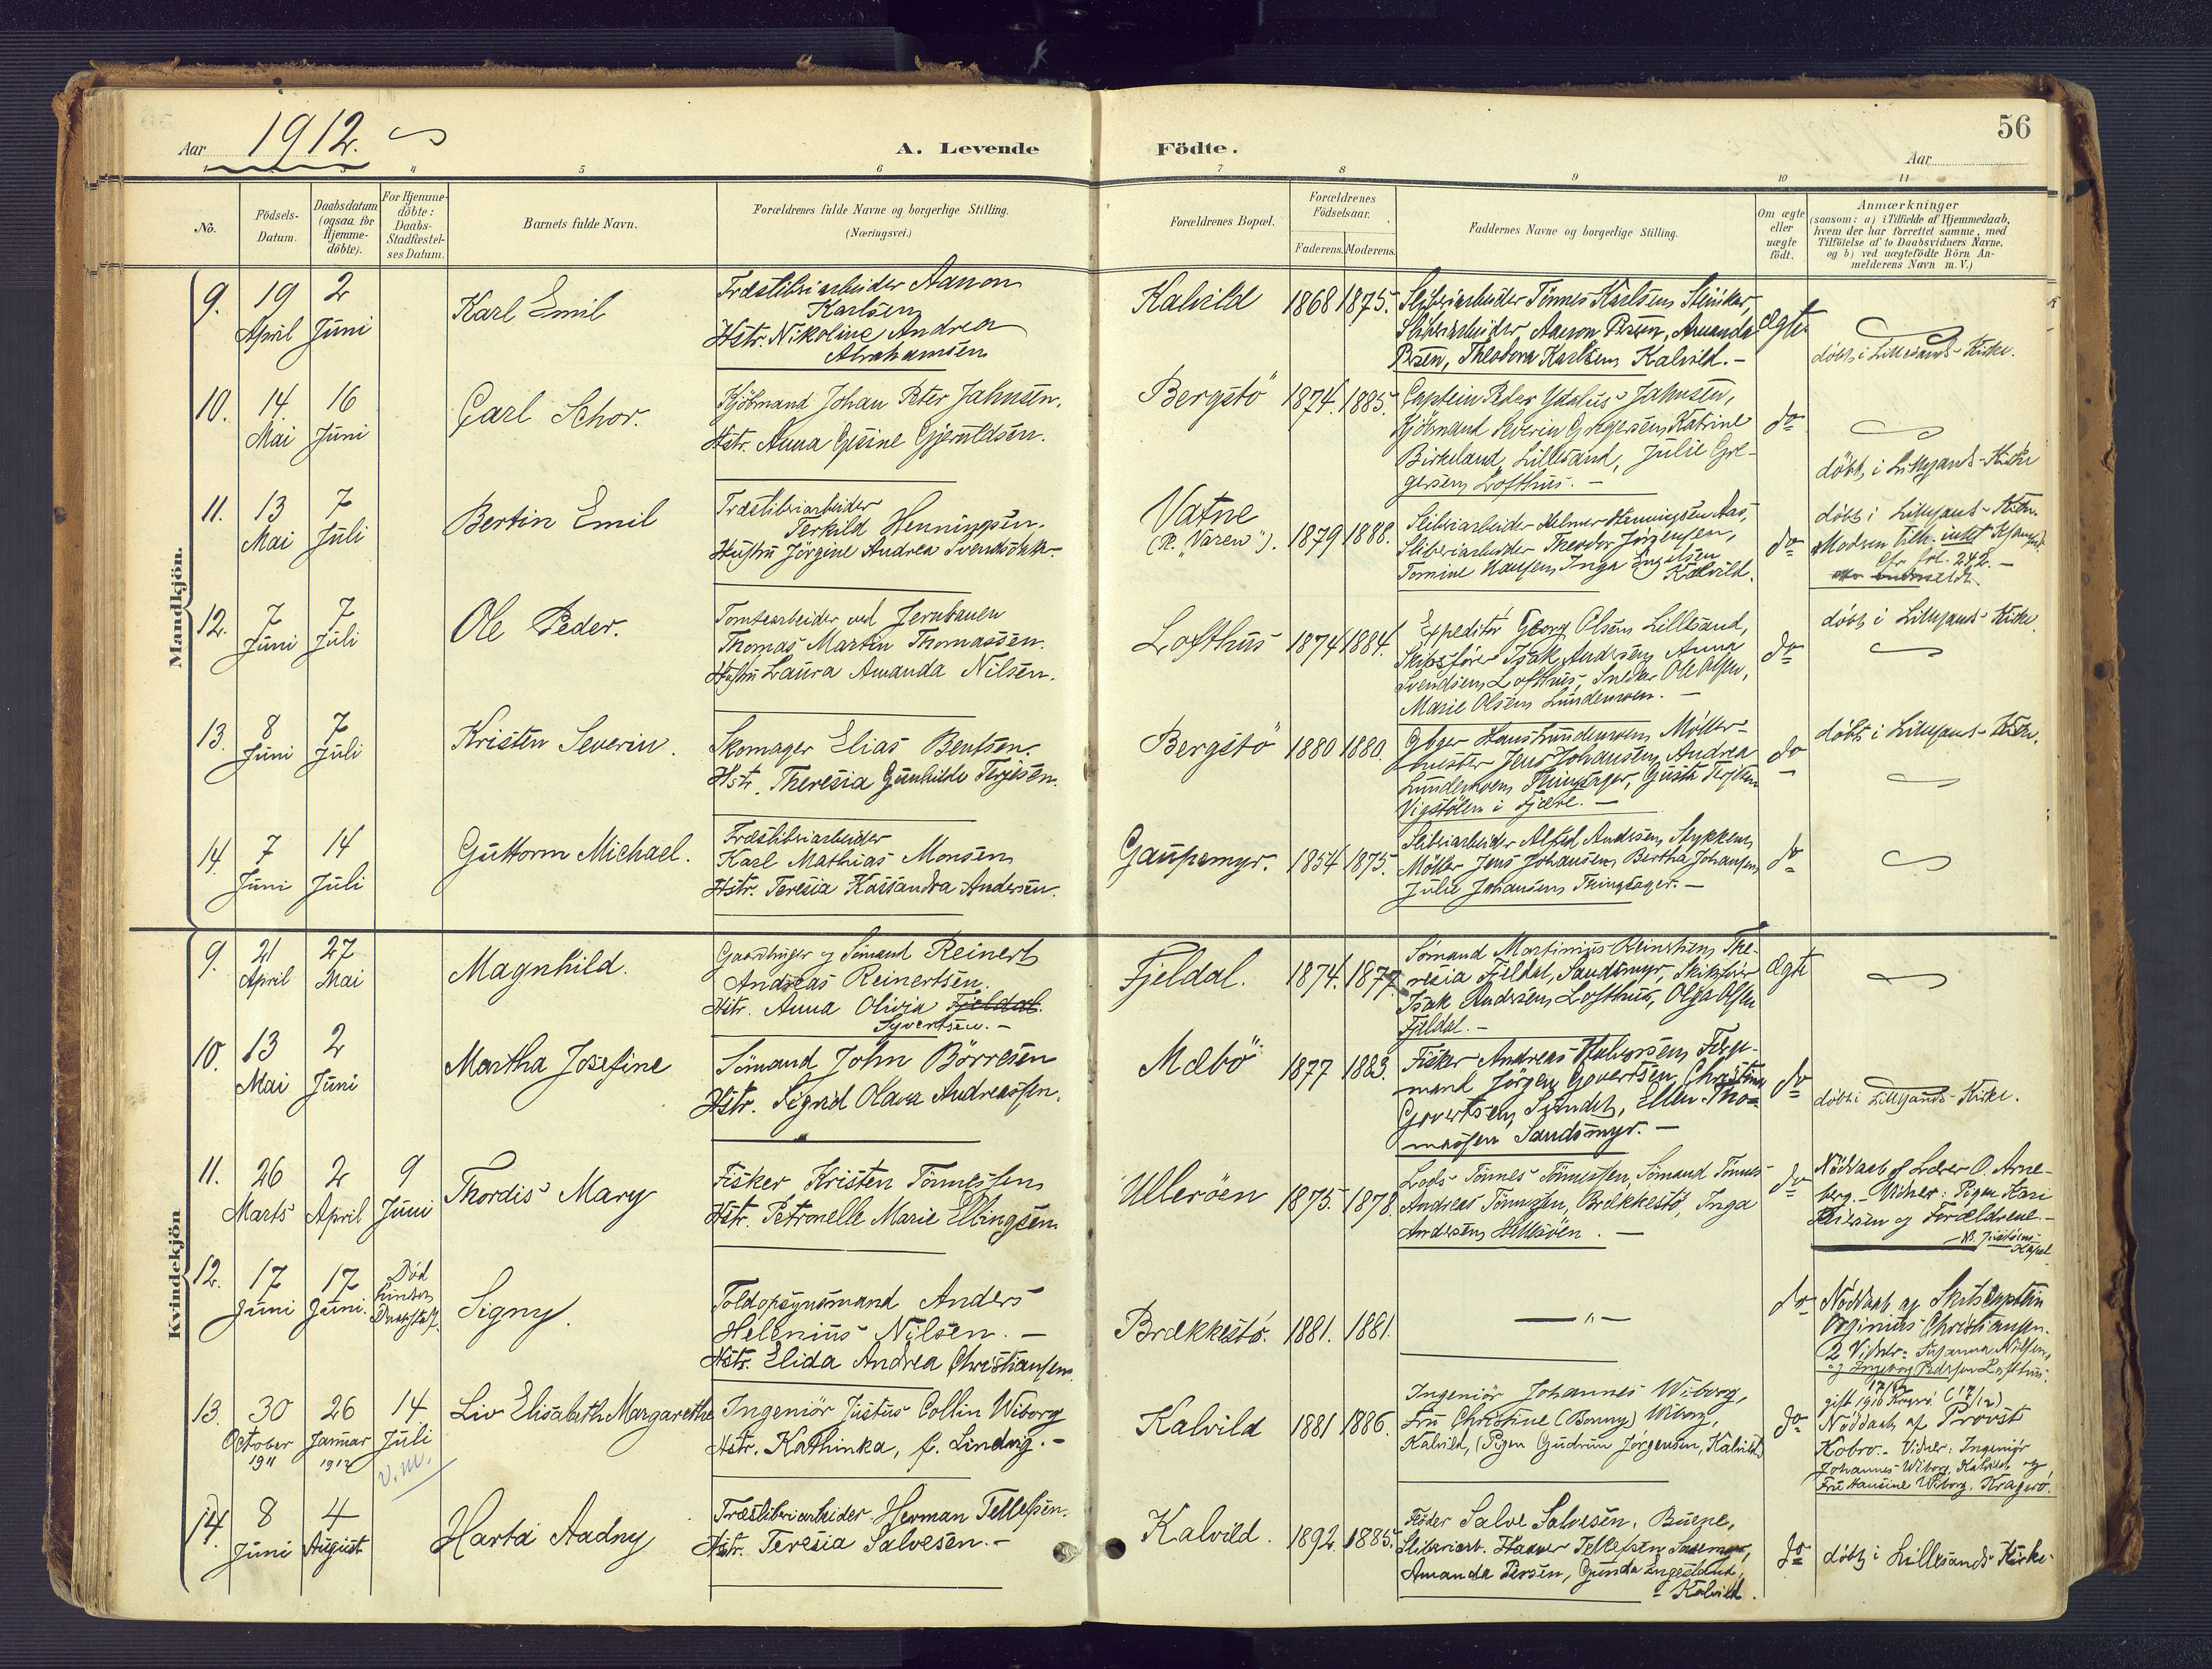 56
Aar 1912.
A. Levende Födte.
Aar
4 5 6 7 8 9 10 11
No.
Födsels-Datum.
Daabsdatum (ogsaa for Hjemme-döbte).
For Hjemme-döbte: Daabs-Stadfæstel-ses Datum.
Barnets fulde Navn.
Forældrenes fulde Navne og borgerlige Stilling. (Næringsvei.)
Forældrenes Bopæl.
Forældrenes Födselsaar.
Faderens. Moderens.
Faddernes Navne og borgerlige Stilling.
Om ægte eller uægte födt.
Anmærkninger
(saasom: a) i Tilfælde af Hjemmedaab,
hvem der har forrettet samme, med
Tilföielse af to Daabsvidners Navne.
og b) ved uægtefödte Börn An-
melderens Navn m.V.)
Mandkjön.
9. 19 April 2 Juni
Karl Emil
Træsliberiarbeider Aanon
Karlsen
Hstr. Nikoline Andrea
Abrahamsen
Kalvild 1868 1875.
Sliberiarbeider Tönnes Karlsen,
Sliberiarbeider Aanon Amanda
Theodora Karlsen, Kalvild. -
Ægte
döbt i Lillesands Kirke.
10. 14. Mai 16 Juni
Carl Schor.
Kjöbmand Johan Peter Jahnsen.
Hstr. Anna Gjeruldsen.
Bergstö 1874. 1885.
Captein Peder Jahnsen,
Kjöbmand Gregersen, Katrine
Birkeland, Lillesand, Julie Gre-
gersen, Lofthus. -
do
döbt i Lillesands Kirke
11. 13 Mai 7 Juli
Bertin Emil
Træsliberiarbeider
Terkild Henningsen.
Hustru Jörgine Andrea
Vatne
1879 1888.
Sliberiarbeider Helmer Henningsen Aas,
Sliberiarbeider Theodor Jörgensen,
Tomine Hansen, Inga
Kalvild.
do
döbt i Lillesands Kirke
Modren
fol. 242. -
12. 7 Juni 7 Juli
Ole Peder.
Tomtearbeider ved Jernbanen
Thomas Martin Thomassen.
Hustru Laura Amanda Nilsen.
Lofthus 1874 1884.
Expeditör Georg Olsen, Lillesand,
Skibsförer Isak Andersen, Anna
Svendsen, Lofthus, Snedker Ole Olsen,
Marie Olsen, Lundemoen. -
do
döbt i Lillesands Kirke
13. 8 Juni 7 Juli
Kristen Severin.
Skomager Elias Bentsen.
Hstr. Theresia Gunhilde Terjesen.
Bergstö 1880 1880.
Lundemoen, Möller-
mester Jens Johansen, Andrea
Lundemoen, Thingsager, Terjesen
i Fjære. -
do
döbt i Lillesands Kirke.
14. 7 Juni 14 Juli
Guttorm Michael.
Træsliberiarbeider
Karl Mathias Monsen
Hstr. Teresia Kassandra Andersen.
Gaupemyr. 1854 1875.
Sliberiarbeider Alfred Andersen,
Möller Jens Johansen, Bertha Johansen,
Julie Johansen, Thingsager. -
do
Kvindekjön
9. 21 April 27 Mai
Magnhild.
Gaardbruger og Sömand Reinert
Andreas Reinertsen.
Hstr. Anna Olivia Fjeldal.
Syvertsen. -
Fjeldal. 1874. 1877.
Sömand Martinius Reinertsen, The-
resia Fjeldal, Sandsmyr, Skibsförer
Isak Andersen, Lofthus, Olga Olsen
Fjeldal. -
Ægte
10. 13 Mai 2 Juni
Martha Josefine
Sömand John Börresen
Hstr. Sigrid Olava Andreassen.
Mæbö 1877 1883.
Fisker Andreas Halvorsen,
mand Jörgen Govertsen, Christine
Govertsen, Ellen Tho-
massen Sandsmyr. -
do
döbt i Lillesands Kirke.
11. 26 Marts 2 April 9 Juni
Thordis Mary
Fisker Kristen Tönnessen
Hstr. Petronelle Marie Ellingsen
Ulleröen 1875 1878.
Lods Tönnes Tönnessen, Sömand Tönnes
Andreas Tönnessen, Brækkestö, Inga
Andersen, Hellesöen. -
do
Nöddaab af Lærer O. Arne-
berg. - Vidner: Pigen Kari
og Forældrene. -
12. 17 Juni 17 Juni. Död
Signy.
Toldopsynsmand Anders
Helenius Nilsen. -
Hstr. Elida Andrea Christiansen.
Brækkestö. 1881. 1881.
— „ —
do
Nöddaab af Skibscaptein
Christiansen.
2 Vidner: Susanna Nilsen,
og Ingeborg Pedersen Lofthus.
13. 30 October 1911 26 Januar 1912 14 Juli
v.m.
Liv Elisabeth Margarethe
Ingeniör Justus Collin Wiborg
Hstr. Kathinka, f. Lindvig. -
Kalvild 1881 1886.
Ingeniör Johannes Wiborg,
Fru Christine (Bonny) Wiborg,
Kalvild, (Pigen Gudrun Jörgensen, Kalvild)
do
gift 1910
Nöddaab af Provst
Kobro. - Vidner: Ingeniör
Johannes Wiborg, Kalvild og
Fru Hansine Wiborg, Kragerö.
14. 8 Juni 4 August
Harta Aadny
Træsliberiarbeider Herman Tellefsen.
Hstr. Teresia Salvesen. -
Kalvild. 1892. 1885.
Salve Salvesen,
Sliberiarb. Tellefsen
Amanda Gunda
Kalvild.
do
döbt i Lillesands Kirke.